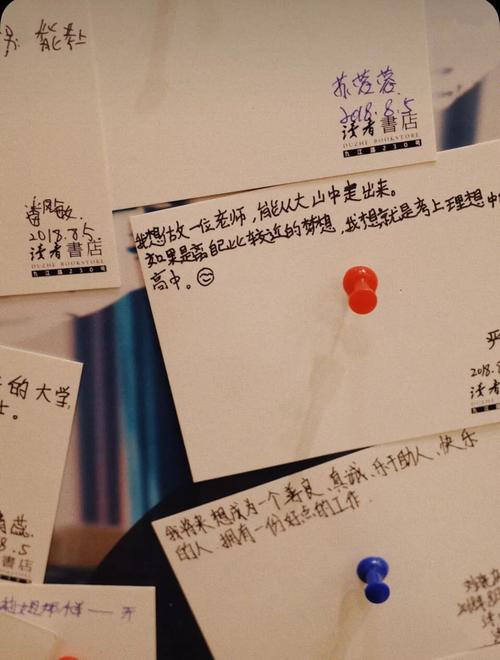 能考上
苏蓉蓉
2018.8.5
读者書店
DUZHE BOOKSTORE
九江路230号
2018.8.5
读者書店
DUZHE BOOKSTORE
九江路230号
我想做一位老师，能从大山中走出来。
如果是离自己比较近的梦想，我想就是考上理想中
高中。
2018.8
读者
的大学，
8.5
書店
我将来想成为一个善良、真诚、乐于助人、快乐
的人，拥有一份好点的工作。